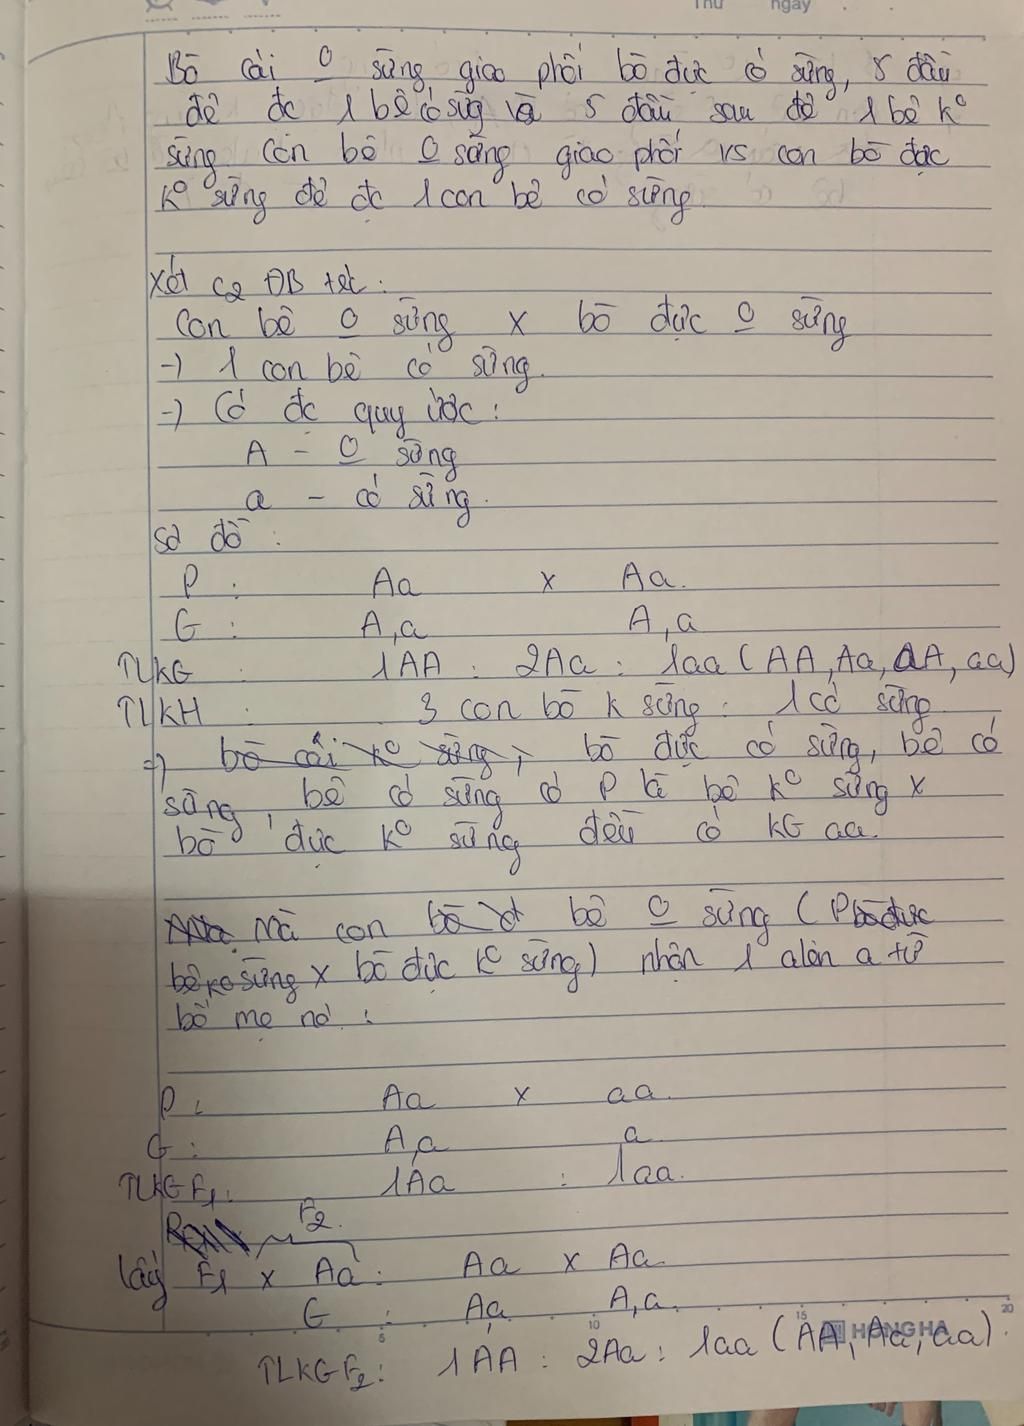 Thứ ngày
Bò cái 0 sừng giao phối bò đực có sừng, s đầu
đẻ đc 1 bê có sừg và s đầu sau đẻ 1 bê k°
sừng. Con bê 0 sừng giao phối vs con bò đực
k° sừng đẻ đc 1 con bê có sừng
Xét cá ĐB tếc:
Con bê 0 sừng x bò đực 0 sừng
-) 1 con bê có sừng.
-) Có đc quy ước:
A - 0 sừng
a - có sừng.
Sơ đồ:
P : Aa x Aa.
G : A,a A,a
TLKG : 1AA : 2Aa : 1aa (AA, Aa, aA, aa)
TLKH : 3 con bò k sừng : 1 có sừng
=) bò cái k° sừng, bò đực có sừng, bê có
sừng, bê có sừng có P là bê k° sừng x
bò đực k° sừng đều có KG aa.
Mà con bò bê 0 sừng (P bò đực
bê ko sừng x bò đực k° sừng) nhận 1 alen a từ
bố mẹ nó :
P : Aa x aa
G : A,a a
TLKG F1 : 1Aa : 1aa.
F2.
lấy F1 x Aa : Aa x Aa
G : A,a A,a.
5 10 15 20
HONG HA
TLKG F2: 1AA : 2Aa : 1aa (AA, Aa, aa)